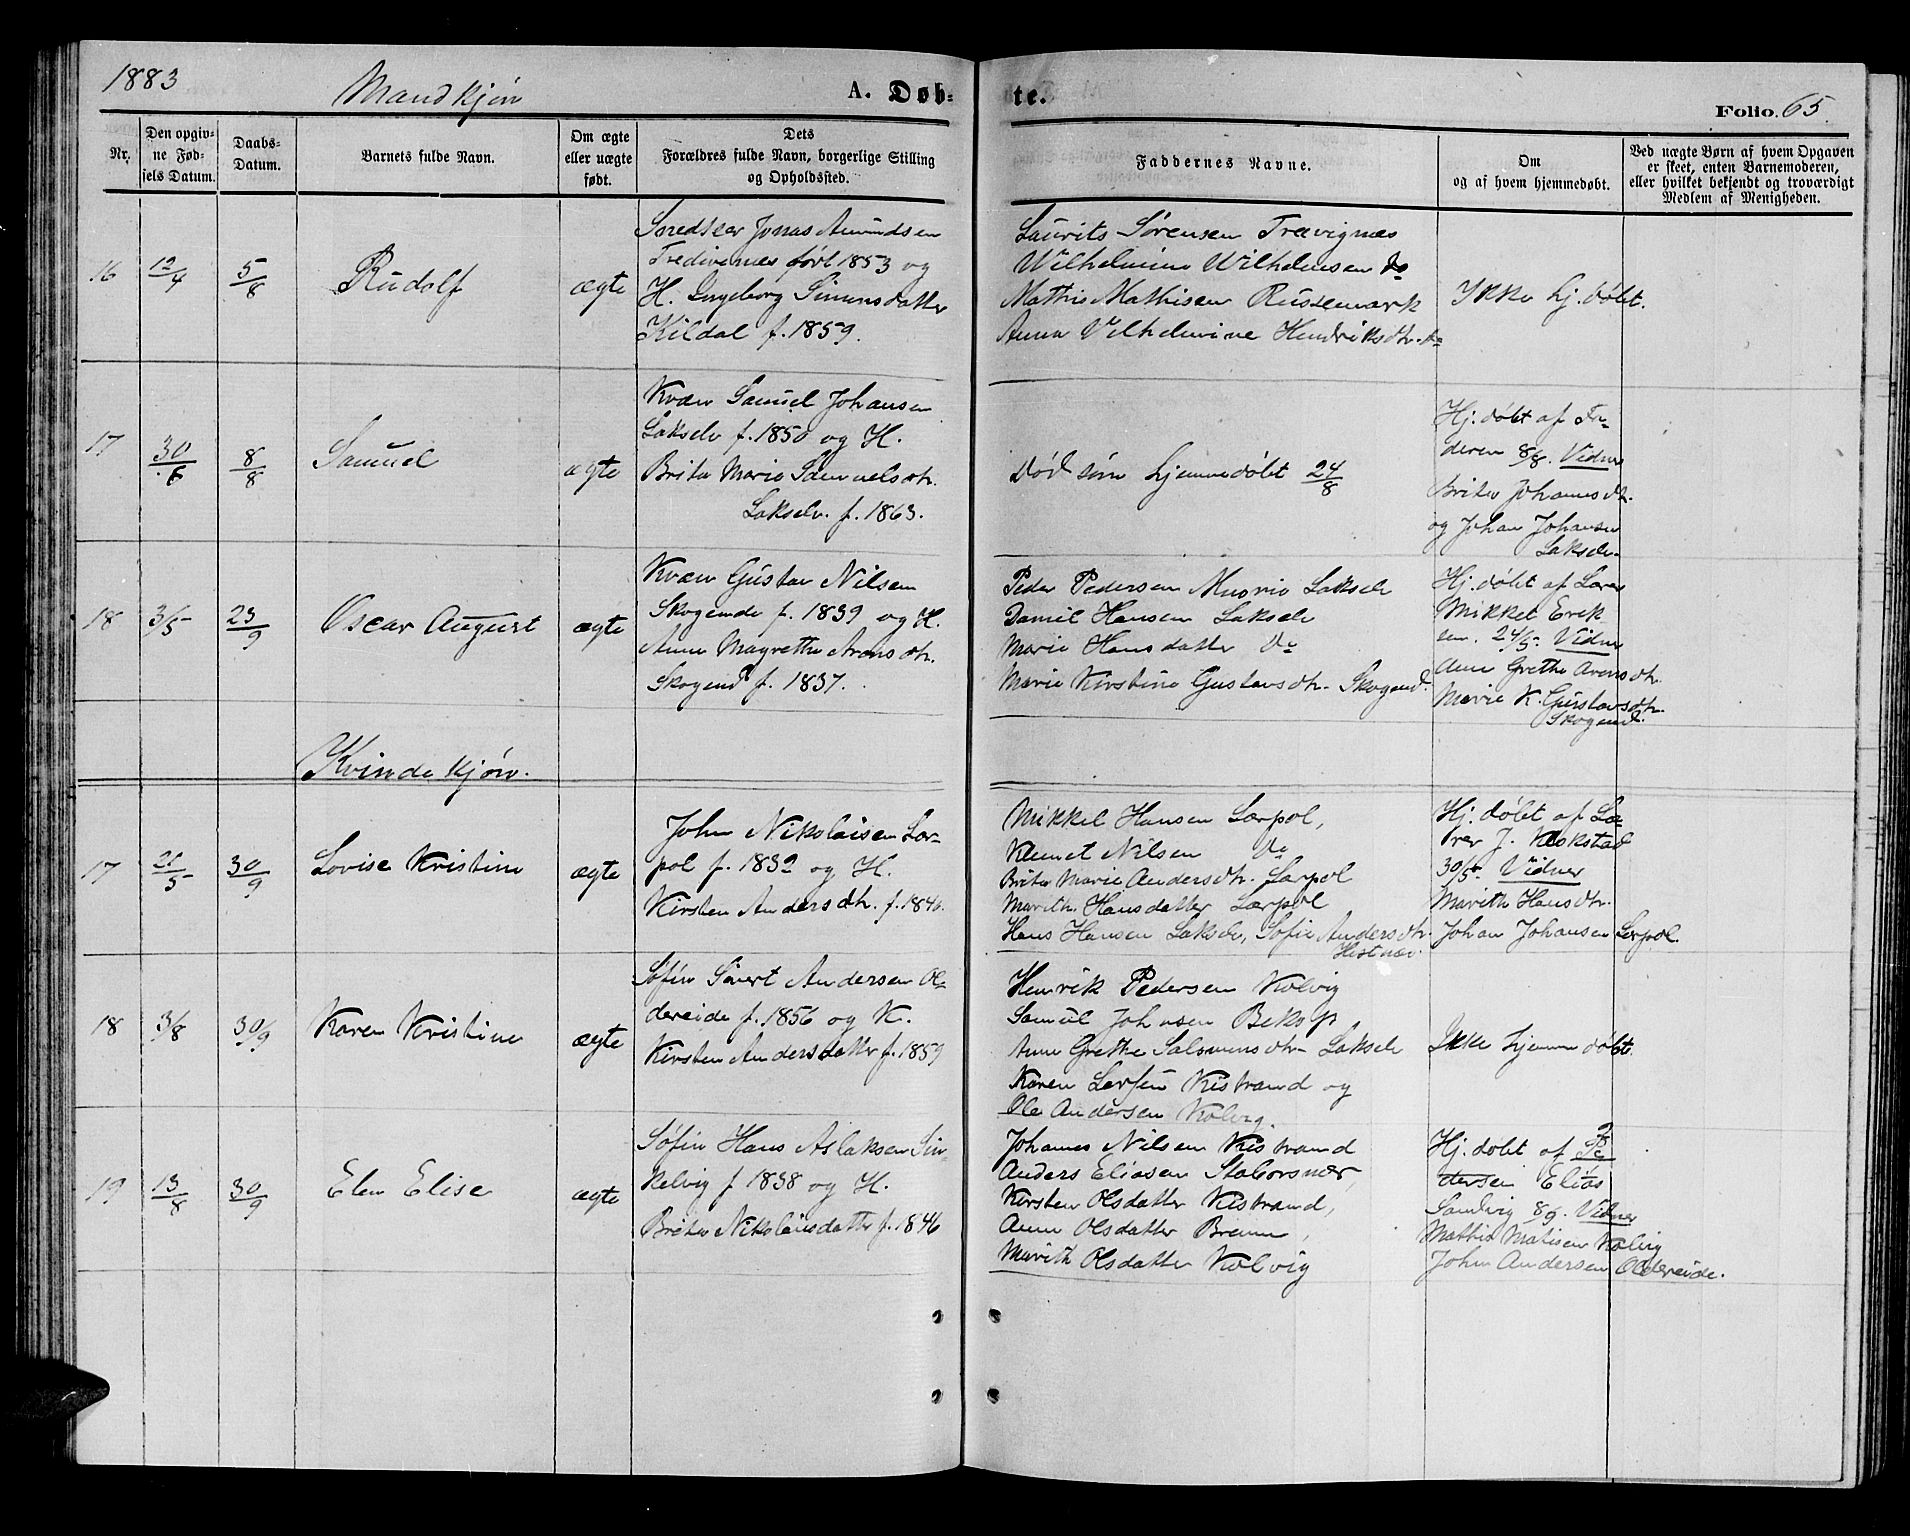 1883
Mandkjøn
A. Døb-
te.
Folio. 65.
Nr.
Den opgiv-
ne Fød-
sels Datum.
Daabs-
Datum.
Barnets fulde Navn.
Om ægte
eller uægte
født.
Dets
Forældres fulde Navn, borgerlige Stilling
og Opholdssted.
Faddernes Navne.
Om
og af hvem hjemmedøbt.
Ved uægte Børn af hvem Opgaven
er skeet, enten Barnemoderen,
eller hvilket bekjendt og troværdigt
Medlem af Menigheden.
16
12/4
5/8
Rudolf
ægte
Jonas Amundsen
født 1853 og
H. Ingeborg Simonsdatter
Kildal f. 1859.
Laurits Sørensen Trævignæs
Wilhelmine Wilhelmsen do
Mathis Mathisen Russemark
Anna Vilhelmine Hendriksdtr. do
Ikke hj. døbt.
17
30/6
8/8
Samuel
ægte
Kvæn Samuel Johansen
Lakselv f. 1850 og H.
Brita Marie Samuelsdtr.
Lakselv. f. 1863.
Død som hjemmedøbt 24/8
Hj. døbt af Fa-
deren 8/8. Vidner
Brita Johannesdtr.
og Johan Johansen
Lakselv.
18
3/5
23/9
Oscar August
ægte
Kvæn Gustav Nilsen
Skogende f. 1839 og H.
Anna Magrethe Aronsdtr.
Skogend f. 1837.
Peder Pedersen Lakselv
Daniel Hansen Lakselv
Marie Hansdatter Do
Marie Kirstine Gustavsdtr. Skogend.
Hj. døbt af Lærer
Mikkel Erik
sen. 24/5. Vidner
Anne Grethe Aronsdtr.
Marie K. Gustavsdtr.
Skogend.
Kvindekjøn.
17
21/5
30/9
Lovise Kristine
ægte
John Nikolaisen Lær-
pol f. 1832 og H.
Kirsten Andersdtr. f. 1846.
Mikkel Hansen Lærpol,
Klemet Nilsen Do
Brita Marie Andersdtr. Lærpol
Marith. Hansdatter Lærpol
Hans Hansen Lakselv, Sofie Andersdtr.
Hestnæs.
Hj. døbt af Læ-
rer J.
30/5. Vidner
Marith Hansdtr.
Johan Johansen Lærpol.
18
3/8
30/9
Karen Kristine
ægte
Søfin Sivert Andersen Ol-
dereide f. 1856 og K.
Kirsten Andersdatter f. 1859
Henrik Pedersen Kolvig
Samuel Johnsen Bekop
Anne Grethe Salomonsdtr. Lakselv
Karen Larsen Kistrand og
Ole Andersen Kolvig.
Ikke hjemmedøbt.
19
13/8
30/9
Elen Elise
ægte
Søfin Hans Aslaksen Sin-
kelvig f 1838 og H.
Brita Nikolaisdatter f. 1846
Johannes Nilsen Kistrand
Anders Eliasen Staborsnæs,
Kirsten Olsdatter Kistrand,
Anne Olsdatter Brenna,
Marith Olsdatter Kolvig
Hj. døbt af Pe-
dersen Elias
Sandvig 8/9. Vidner
Mathis Matisen Kolvig
John Andersen Oldereide.